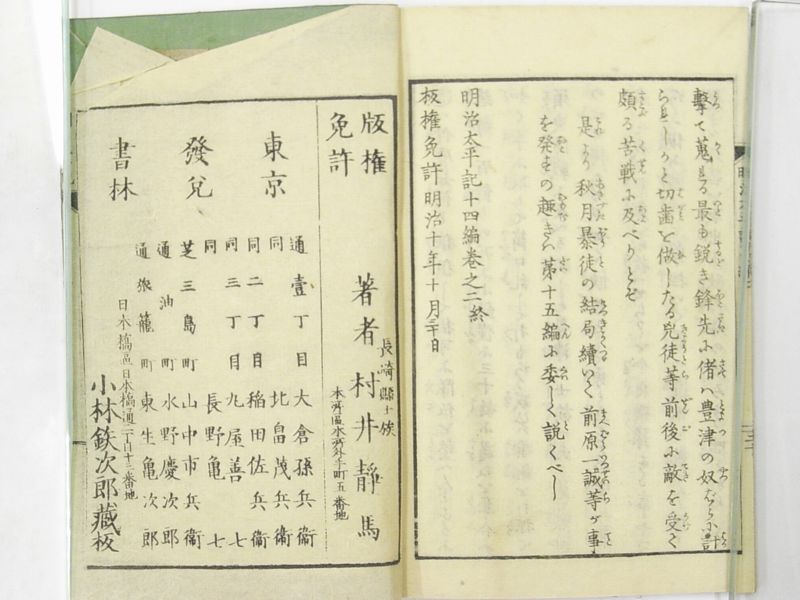 撃て蒐れる最も鋭き鋒先に偖ハ豊津の奴ばらに計
られしかと切歯を做したる兇徒等前後に敵を受く
頗る苦戦に及べりとぞ
是より秋月暴徒の結局續いて前原一誠等が事
を発せの趣きハ第十五編に委しく説くべし
明治太平記十四編巻之二終
板権免許明治十年十月三十日
版権免許
長崎縣士族
著者 村井靜馬
本所區水所外手町五番地
東京
發兌
書林
通壹丁目 大倉孫兵衞
同 北畠茂兵衞
同二丁目 稲田佐兵衞
同三丁目 丸屋善七
同 長野亀七
芝三島町 山中市兵衞
通油町 水野慶次郎
通旅籠町 東生亀次郎
日本橋區日本橋通二丁目十三番地
小林鉄次郎藏板